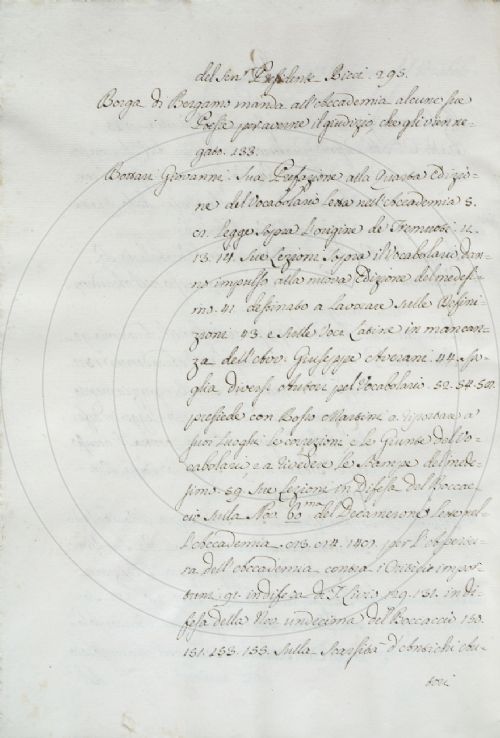 del Sen.r Presidente Ricci. 295.
Borga di Bergamo manda all'Accademia alcune sue
Poesie per averne il giudizio, che gli vien ne-
gato. 133.
Bottari Giovanni. Sua Prefazione alla Quarta Edizio-
ne del Vocabolario letta nell'Accademia 8.
legge sopra l'origine de Tremuoti. 12.
13. 14. Sue Lezioni sopra il Vocabolario dan-
no impulso alla nuova Edizione del medesi-
mo. 41. destinato a lavorare sulle Defini-
zioni 43. e sulle Voci Latine in mancan-
za dell'Avv. Giuseppe Averani. 44. spo-
glia diversi Autori pel Vocabolario. 52. 54.
presiede con Rosso Martini a riportare a
suoi luoghi le correzioni e le Giunte del Vo-
cabolario, e a rivedere le Stampe del mede-
simo. 59. Sue Lezioni in Difesa del Boccac-
cio sulla Nov. 60.ma del Decamerone lette nel-
l'Accademia. 93. 94. per l'apertu-
ra dell'Accademia contra i Critici impor-
tuni. 91. in difesa di T. Livio. 129. 131. in di-
fesa della Nov. undecima del Boccaccio 150.
151. 153. 155. sulla scarsità d'Antichi Au-
tori